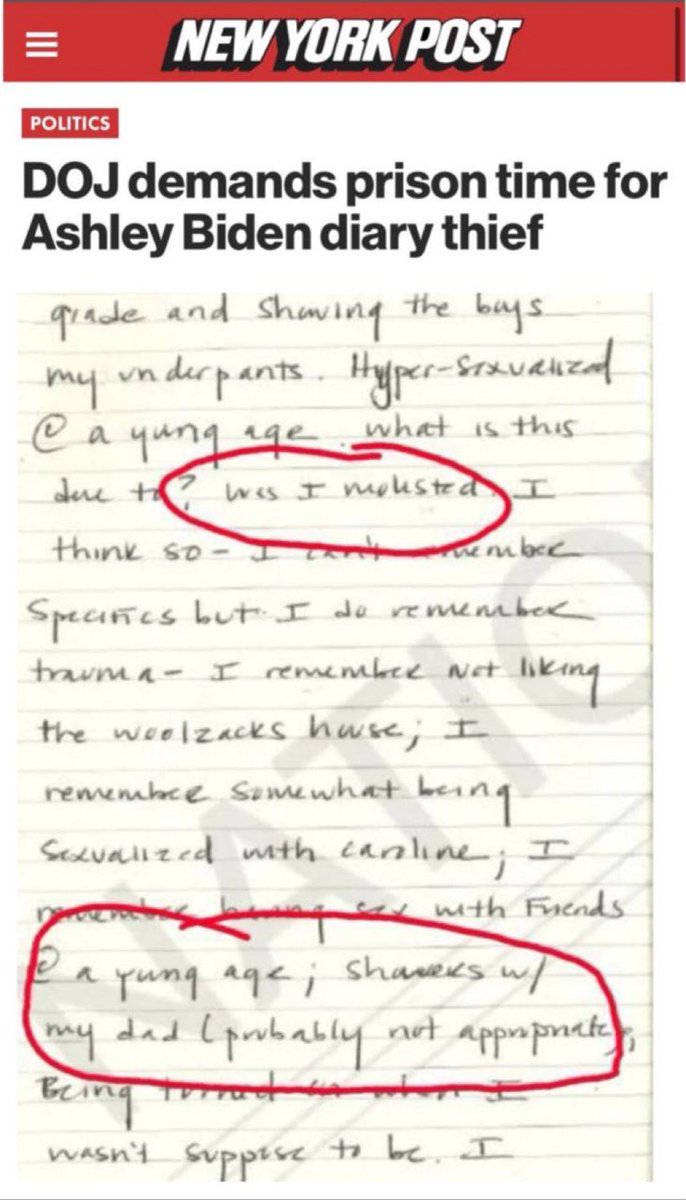 NEW YORK POST
POLITICS
DOJ demands prison time for
Ashley Biden diary thief
grade and showing the boys
my underpants. Hyper-sexualized
@ a yung age. what is this
due to? Was I molested. I
think so - I can't remember
specifics but I do remember
trauma - I remember not liking
the woolzacks house; I
remember somewhat being
sexualized with caroline; I
remember having sex with Friends
@ a yung age; showers w/
my dad (probably not appropriate).
Being turned on when I
wasn't suppose to be. I
NATIO